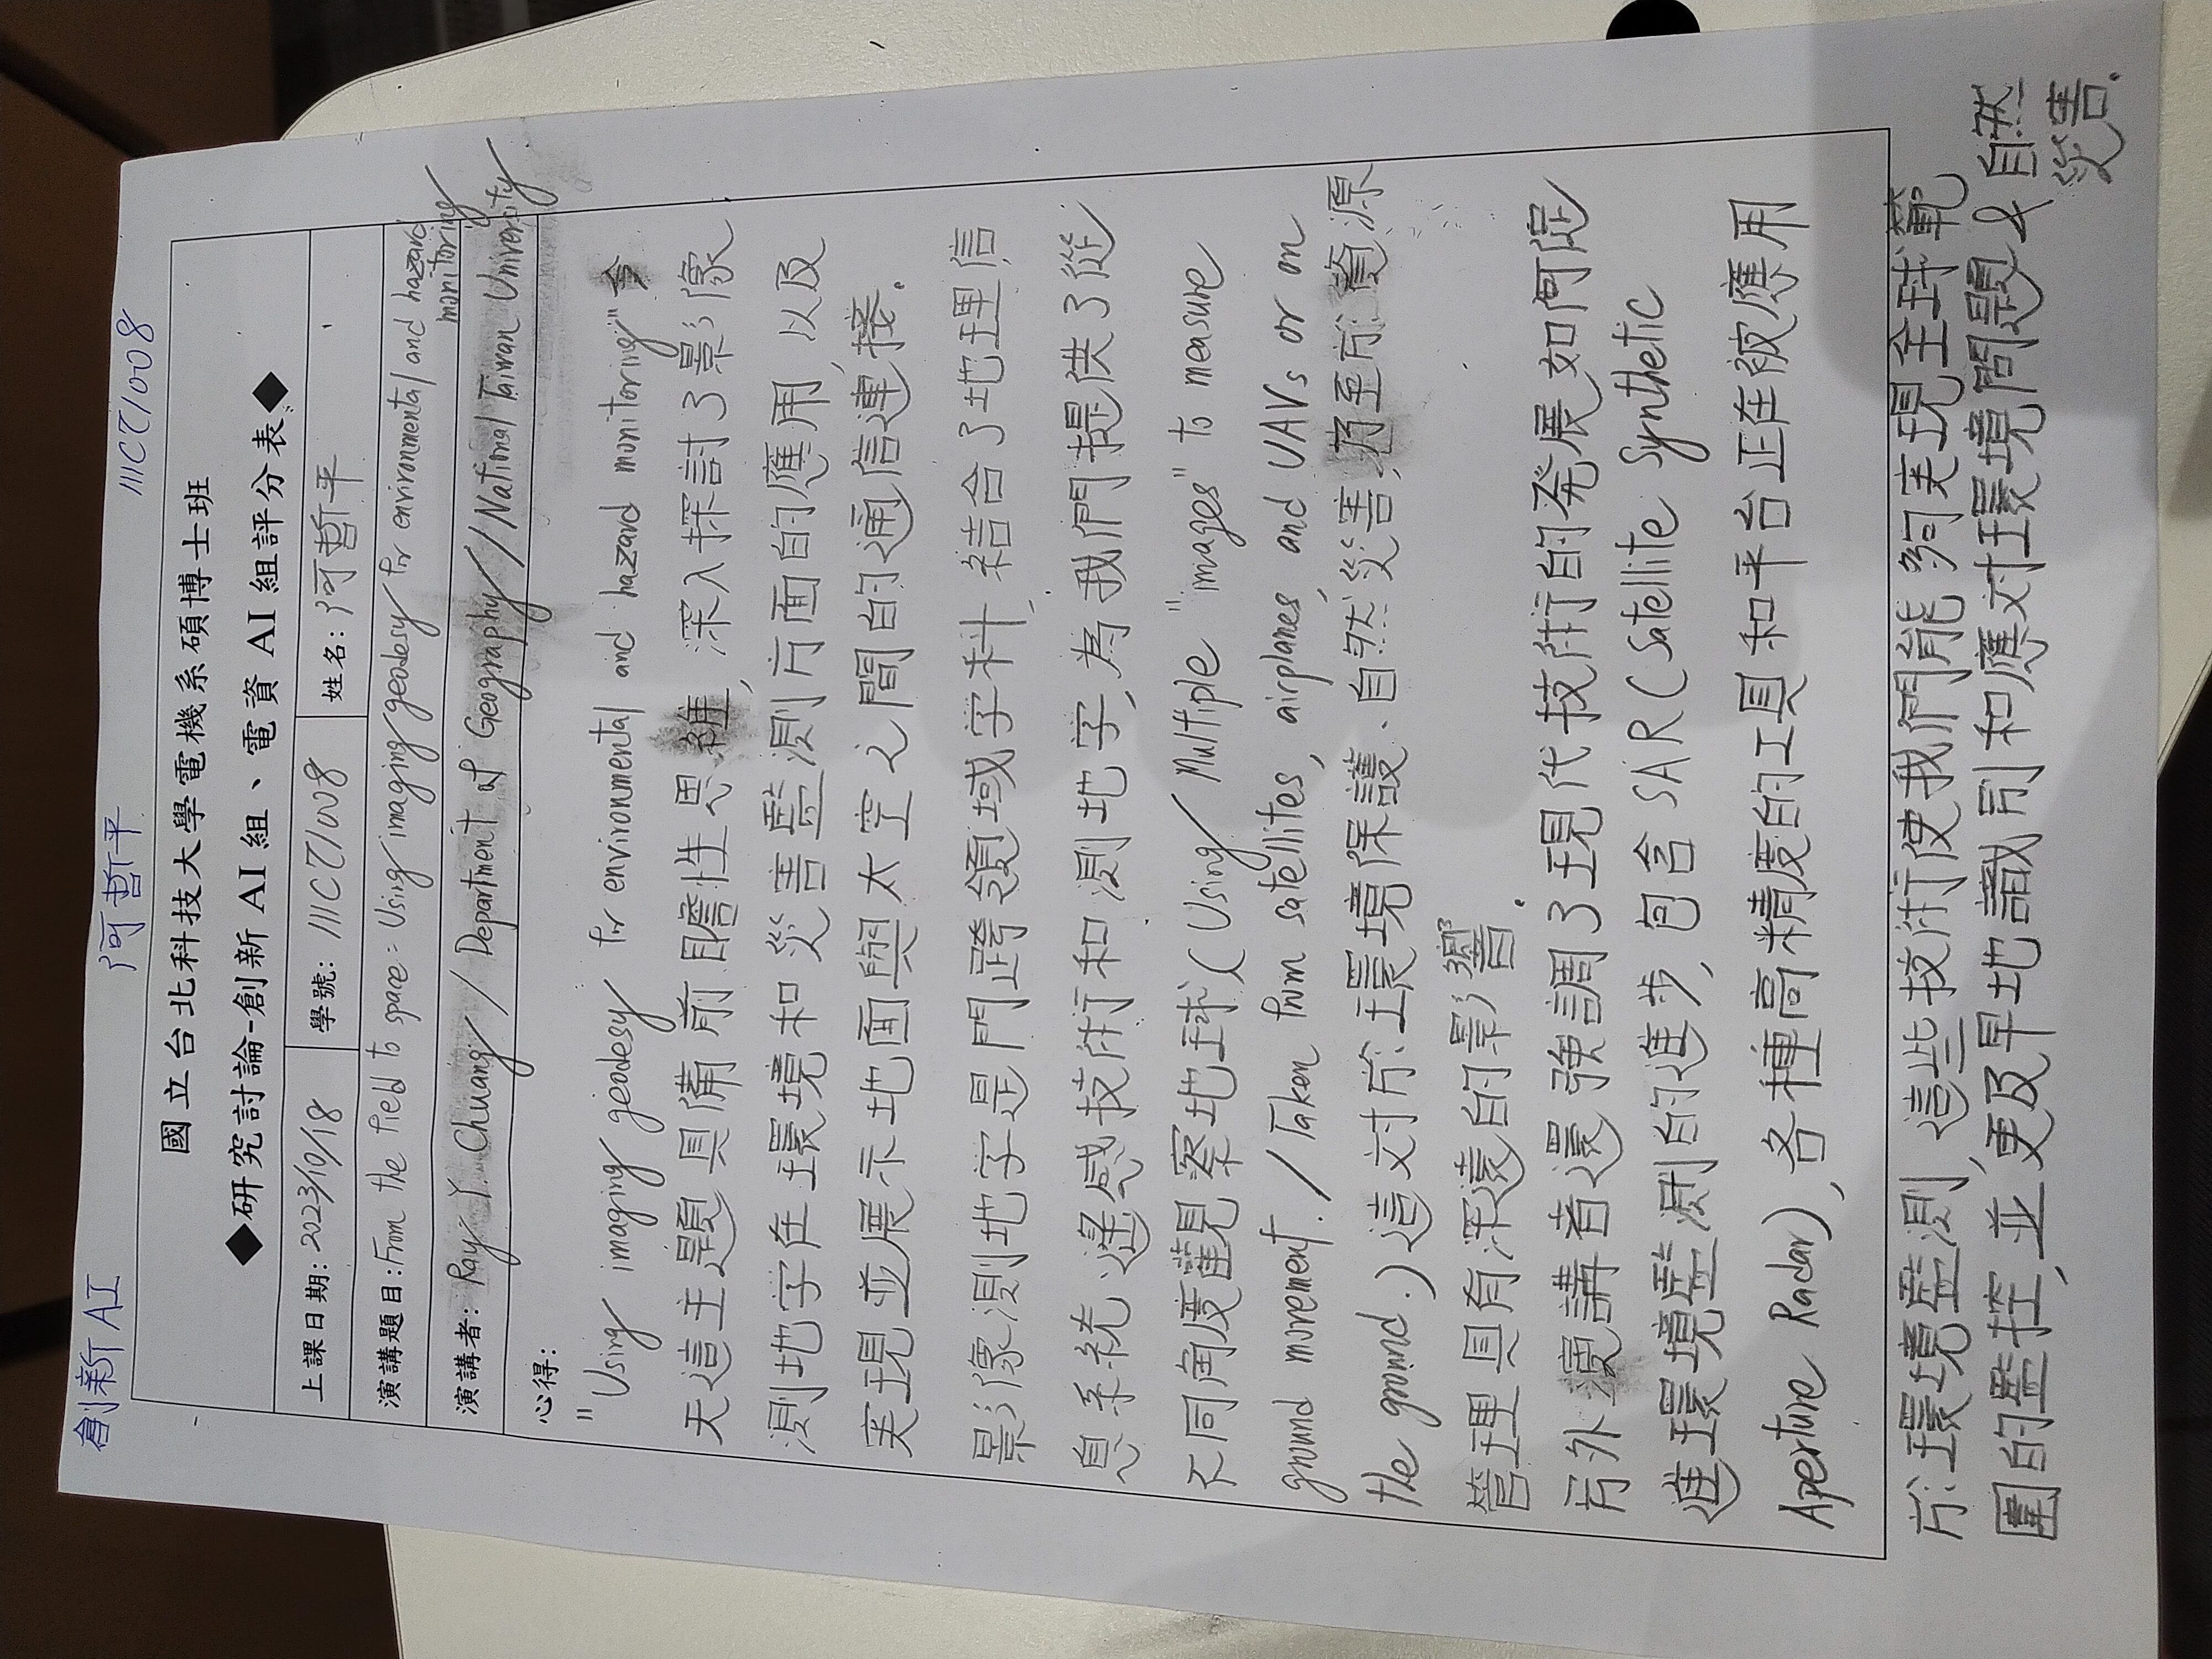 創新AI 阿哲平 111C71008
國立台北科技大學電機系碩博士班
◆研究討論-創新 AI 組、電資 AI 組評分表◆
上課日期: 2023/10/18 學號: 111C71008 姓名: 阿哲平
演講題目: From the field to space: Using imaging geodesy for environmental and hazard
monitoring
演講者: Ray Y. Chuang / Department of Geography / National Taiwan University
心得:
"Using imaging geodesy for environmental and hazard monitoring" 今
天這主題具備前瞻性思維, 深入探討了影像
測地字在環境和災害監測方面的應用, 以及
実現並展示地面與太空之間的通信連接.
影像測地字是門跨領域字科, 結合了地理信
息系統、遙感技術和測地字, 為我們提供了從
不同角度觀察地球, (Using Multiple "images" to measure
ground movement. / Taken from satellites, airplanes, and UAVs or on
the ground.) 這対於環境保護、自然災害, 乃至於資源
管理具有深遠的影響.
另外演講者還強調了現代技術的発展如何促
進環境監測的進步, 包含 SAR (Satellite Synthetic
Aperture Radar), 各種高精度的工具和平台正在被應用
於環境監測, 這些技術使我們能夠実現全球範
圍的監控, 並更及早地識別和應対環境問題 & 自然
災害.